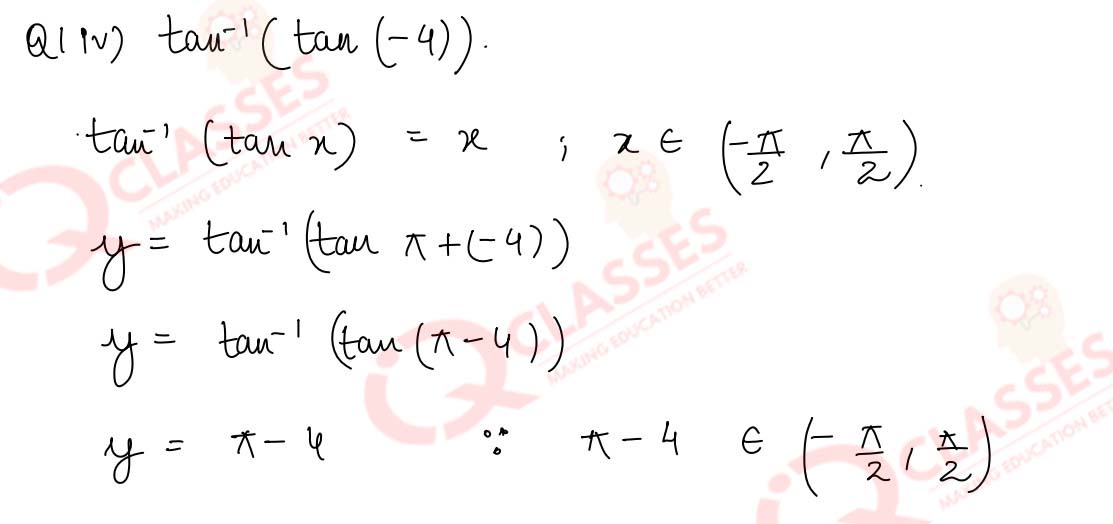 Q1 iv) tan⁻¹(tan(-4)).
tan⁻¹(tan x) = x ; x ∈ (-π/2, π/2).
y = tan⁻¹(tan π+(-4))
y = tan⁻¹(tan(π-4))
y = π-4 ∵ π-4 ∈ (-π/2, π/2)
IQ CLASSES
MAKING EDUCATION BETTER
IQ CLASSES
MAKING EDUCATION BETTER
IQ CLASSES
MAKING EDUCATION BETTER